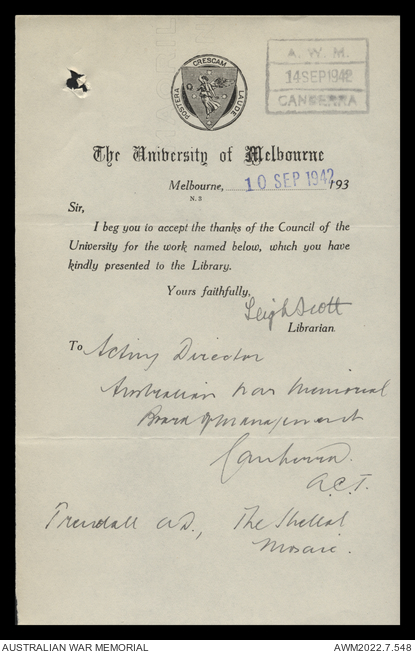 POSTERA CRESCAM LAUDE
A. W. M.
14 SEP 1942
CANBERRA
The University of Melbourne
Melbourne, 10 SEP 1942 193
N. 3
Sir,
I beg you to accept the thanks of the Council of the
University for the work named below, which you have
kindly presented to the Library.
Yours faithfully,
Leigh Scott
Librarian
To Acting Director
Australian War Memorial
Board of Management
Canberra.
A.C.T.
Trendall A.D., The Shellal
Mosaic.
AUSTRALIAN WAR MEMORIAL
AWM2022.7.548